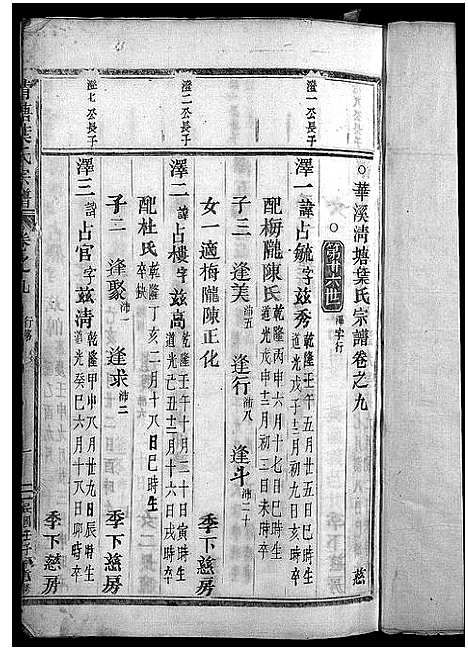 華溪清塘葉氏宗譜卷之九 慈
第廿六世 澤字行
澄一公長子
澤一 諱占毓字茲秀 乾隆壬午五月廿五日巳時生 道光戊子十二月初三日巳時卒
配梅隴陳氏 乾隆丙申六月十七日巳時生 道光戊申十一月初二日未時卒
子三 逢美 沛五 逢行 沛八 逢斗 沛二十
女一適梅隴陳正化 季下慈房
澄二公長子
澤二 諱占樓字茲高 乾隆壬午十月三十日寅時生 道光己丑十二月十六日戌時卒
配杜氏 乾隆丁亥二月十八日巳時生 卒缺
子二 逢聚 沛一 逢求 沛二 季下慈房
澄七公長子
澤三 諱占官字茲清 乾隆甲申八月廿九日辰時生 道光癸巳六月十八日卯時卒
季下慈房
清塘葉氏宗譜 卷之九 行第